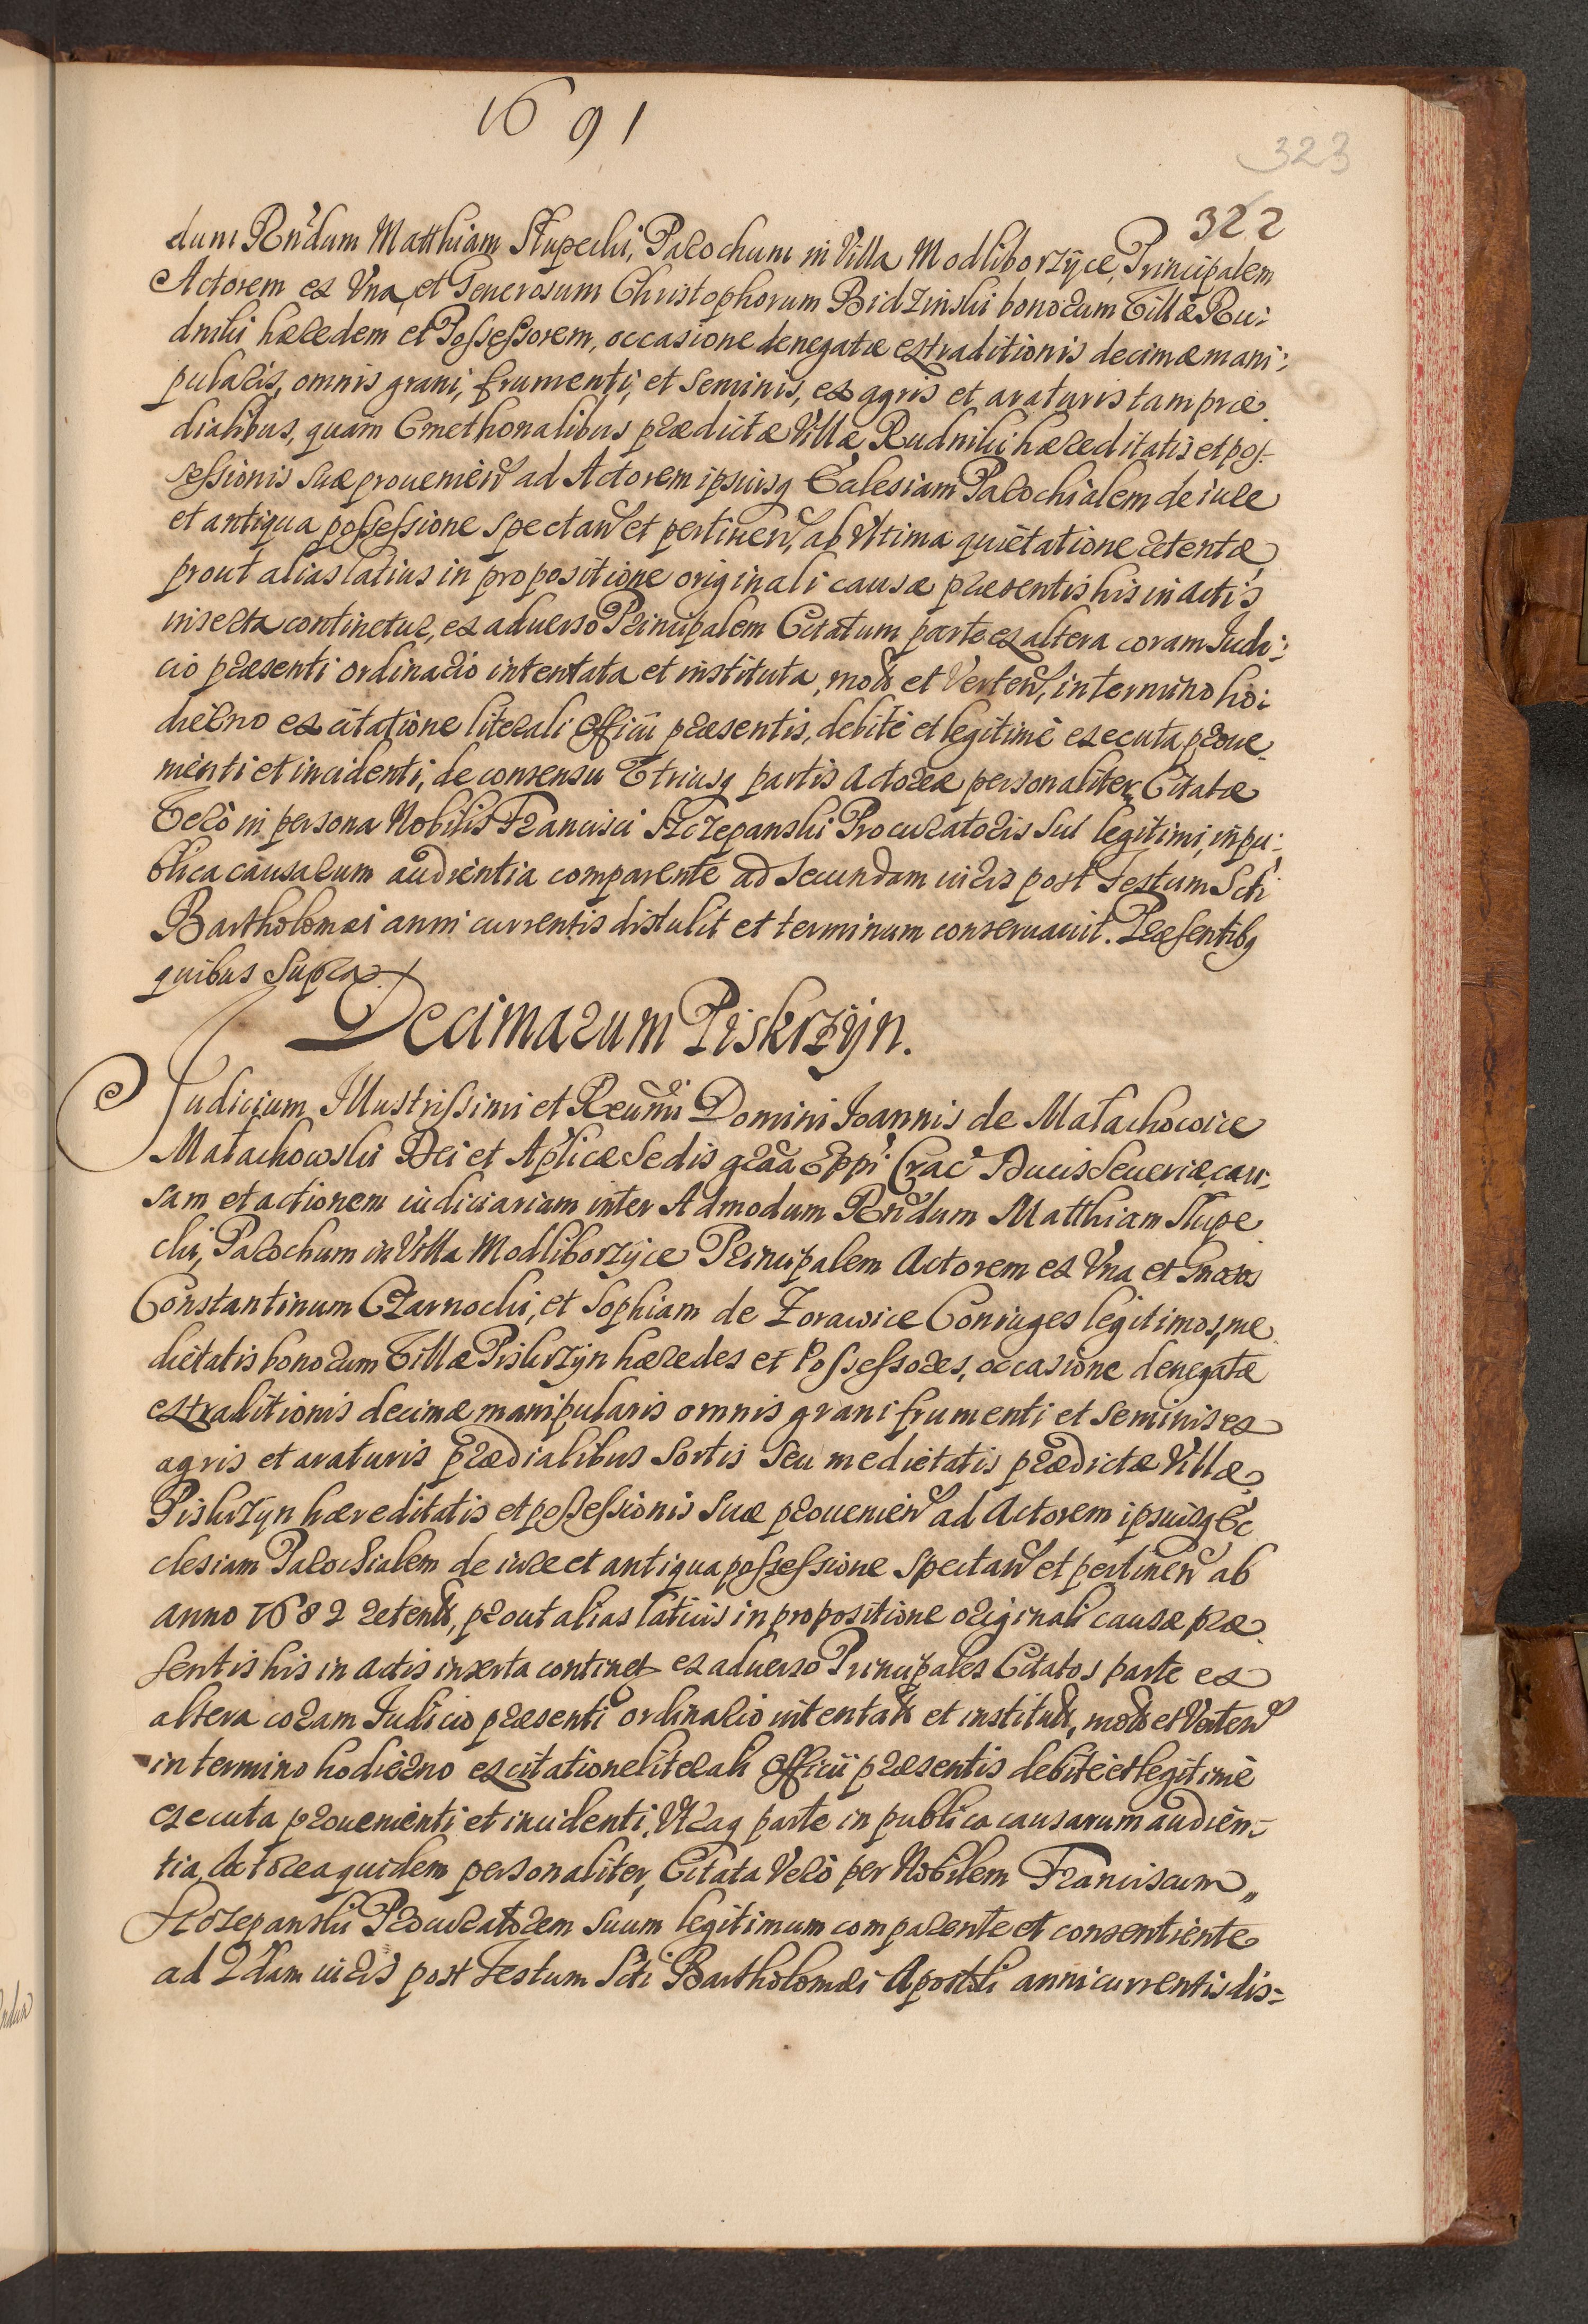 1691
323
322
dum Rndum Matthiam Słupecki, Parochum in Villa Modliborzyce, Principalem
Actorem ex Una, et Generosum Christophorum Bidzinski bonorum Villæ Ru:
dniki hæredem et Possessorem, occasione denegatæ extraditionis decimæ mani:
pularis, omnis grani, frumenti, et seminis, ex agris et araturis tam præ
dialibus, quam Cmethonalibus prædictæ Villæ Rudniki hæreditatis et pos-
sessionis suæ prouenien ad Actorem ipsiusq Ecclesiam Parochialem de iure
et antiqua possessione spectan et pertinen, ab Vltima quietatione retentæ
prout alias latius in propositione originali causæ præsentis his in actis
inserta continetur, ex aduerso Principalem Citatum parte ex altera coram Iudi:
cio præsenti ordinario intentata et instituta, mota et Verten, in termino ho:
dierno ex citatione literali Officii præsentis, debitè et legitimè executa, proue
nienti et incidenti, de consensu Vtriusq partis Actoreæ personaliter, Citatæ
Verò in persona Nobilis Francisci Szczepanski Procuratoris sui legitimi, in pu:
blica causarum audientia comparente ad secundam iuris post Festum Scti
Bartholomæi anni currentis distulit et terminum conseruauit. Præsentibq
quibus supra.
Decimarum Piskrzyn.
Iudicium Illustrissimi et Reundi Domini Ioannis de Małachowice
Małachowski Dei et Aplicæ Sedis graa Eppi Crac Ducis Seueriæ, cau:
sam et actionem iudiciariam inter Admodum Rndum Matthiam Słupe
cki, Parochum in Villa Modliborzyce Principalem Actorem ex Vna et Gnosos
Constantinum Czarnocki, et Sophiam de Zorawice Coniuges legitimos, me
dietatis bonorum Villæ Piskrzyn hæredes et Possessores, occasione denegatæ
extraditionis decimæ manipularis omnis grani frumenti et seminis ex
agris et araturis prædialibus sortis seu medietatis prædictæ Villæ
Piskrzyn hæreditatis et possessionis suæ prouenien ad Actorem ipsiusq Ec
clesiam Parochialem de iure et antiqua possessione spectan et pertinen ab
anno 1682 retenta, prout alias latius in propositione originali causæ præ
sentis his in actis inserta continet ex aduerso Principales Citatos parte ex
altera coram Iudicio præsenti ordinario intentata et instituta, mota et Verten
in termino hodierno ex citatione literali Officii præsentis debitè et legitimè
executa prouenienti et incidenti, Vtraq parte in publica causarum audien:
tia, Actorea quidem personaliter, Citata Verò per Nobilem Franciscum
Szczepanski Procuratorem suum legitimum comparente et consentiente
ad 2dam iuris post Festum Scti Bartholomæi Apostoli anni currentis dis: